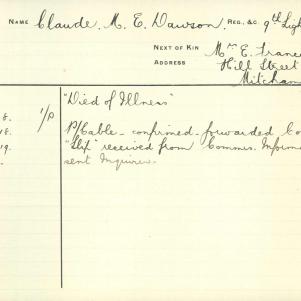 NAME Claude. M. E. Dawson. REG. &C. 9th Ligh
NEXT OF KIN Mrs E. Frane
ADDRESS Hill Street
Mitcham
"Died of Illness"
8. 1/P P/Cable - confirmed - forwarded Co
18. "Slip" received from Commis. Informa
19. sent Inquirer.